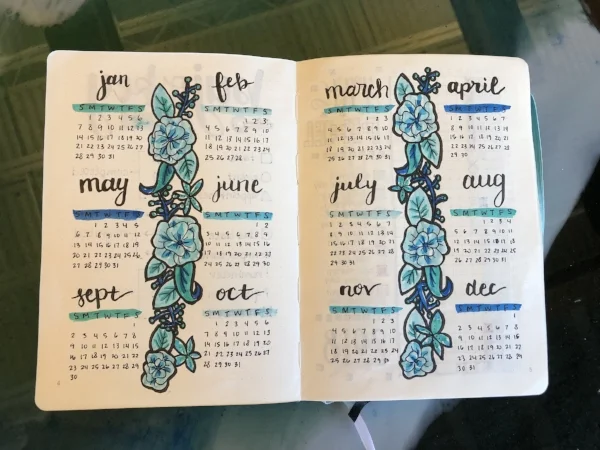 jan
S M T W T F S
1 2 3 4 5 6
7 8 9 10 11 12 13
14 15 16 17 18 19 20
21 22 23 24 25 26 27
28 29 30 31
feb
S M T W T F S
1 2 3
4 5 6 7 8 9 10
11 12 13 14 15 16 17
18 19 20 21 22 23 24
25 26 27 28
may
S M T W T F S
1 2 3 4 5
6 7 8 9 10 11 12
13 14 15 16 17 18 19
20 21 22 23 24 25 26
27 28 29 30 31
june
S M T W T F S
1 2
3 4 5 6 7 8 9
10 11 12 13 14 15 16
17 18 19 20 21 22 23
24 25 26 27 28 29 30
sept
S M T W T F S
1
2 3 4 5 6 7 8
9 10 11 12 13 14 15
16 17 18 19 20 21 22
23 24 25 26 27 28 29
30
oct
S M T W T F S
1 2 3 4 5 6
7 8 9 10 11 12 13
14 15 16 17 18 19 20
21 22 23 24 25 26 27
28 29 30 31
march
S M T W T F S
1 2 3
4 5 6 7 8 9 10
11 12 13 14 15 16 17
18 19 20 21 22 23 24
25 26 27 28 29 30 31
april
S M T W T F S
1 2 3 4 5 6 7
8 9 10 11 12 13 14
15 16 17 18 19 20 21
22 23 24 25 26 27 28
29 30
july
S M T W T F S
1 2 3 4 5 6 7
8 9 10 11 12 13 14
15 16 17 18 19 20 21
22 23 24 25 26 27 28
29 30 31
aug
S M T W T F S
1 2 3 4
5 6 7 8 9 10 11
12 13 14 15 16 17 18
19 20 21 22 23 24 25
26 27 28 29 30 31
nov
S M T W T F S
1 2 3
4 5 6 7 8 9 10
11 12 13 14 15 16 17
18 19 20 21 22 23 24
25 26 27 28 29 30
dec
S M T W T F S
1
2 3 4 5 6 7 8
9 10 11 12 13 14 15
16 17 18 19 20 21 22
23 24 25 26 27 28 29
30 31